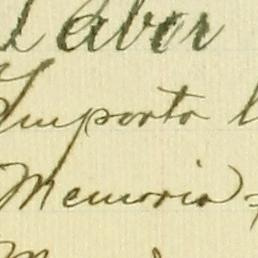 Labor
Importo l
Memoria